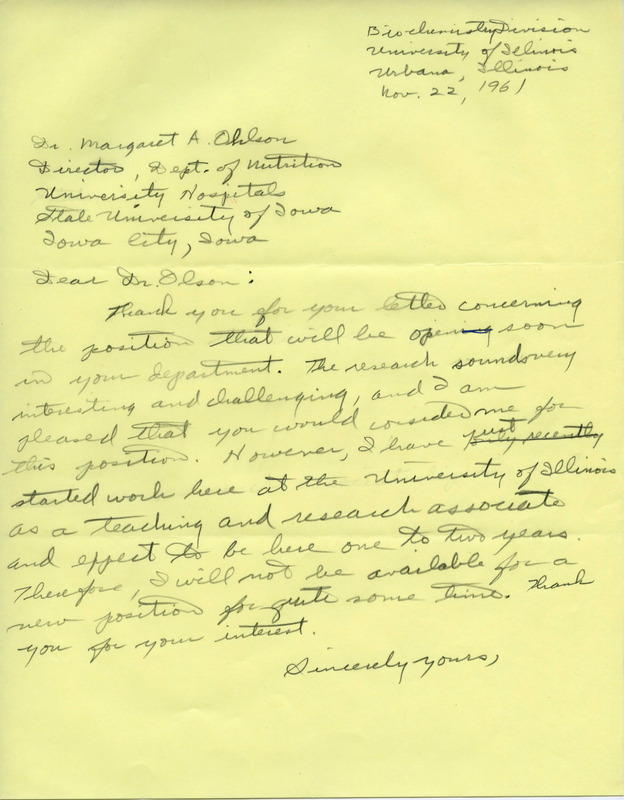 Biochemistry Division
University of Illinois
Urbana, Illinois
Nov. 22, 1961
Dr. Margaret A. Ohlson
Director, Dept. of Nutrition
University Hospitals
State University of Iowa
Iowa City, Iowa
Dear Dr. Olson:
Thank you for your letter concerning
the position that will be open soon
in your department. The research sounds very
interesting and challenging, and I am
pleased that you would cosider me for
this position. However, I have just
only recently
started work here at the University of Illinois
as a teaching and research associate
and expect to be here one to two years.
Therefore, I will not be available for a
new position for quite some time. Thank
you for your interest.
Sincerely yours,